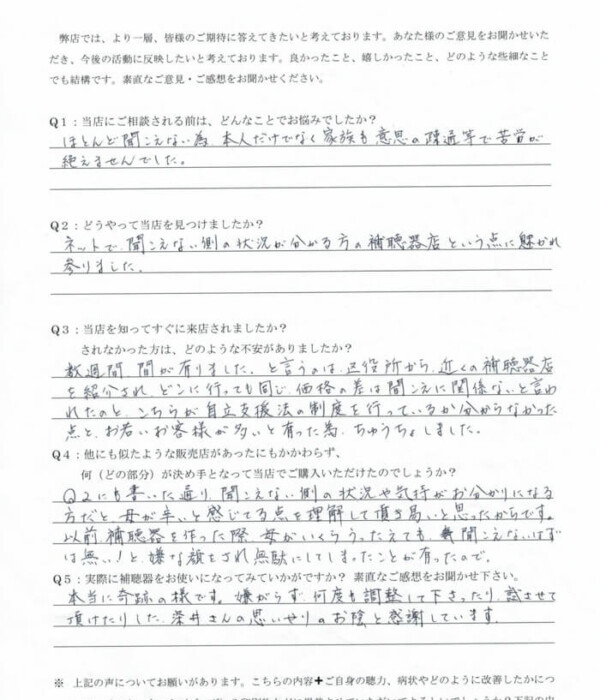 弊店では、より一層、皆様のご期待に答えてきたいと考えております。あなた様のご意見をお聞かせいた
だき、今後の活動に反映したいと考えております。良かったこと、嬉しかったこと、どのような些細なこと
でも結構です。素直なご意見・ご感想をお聞かせください。
Q1：当店にご相談される前は、どんなことでお悩みでしたか？
ほとんど聞こえない為、本人だけでなく家族も意思の疎通等で苦労が
絶えませんでした。
Q2：どうやって当店を見つけましたか？
ネットで、聞こえない側の状況が分かる方の補聴器店という点に魅かれ
参りました。
Q3：当店を知ってすぐに来店されましたか？
されなかった方は、どのような不安がありましたか？
数週間、間が有りました。と言うのは、区役所から、近くの補聴器店
を紹介され、どこに行っても同じ、価格の差は聞こえに関係ないと言わ
れたのと、こちらが自立支援法の制度を行っているか分からなかった
点と、お若いお客様が多いと有った為、ちゅうちょしました。
Q4：他にも似たような販売店があったにもかかわらず、
何（どの部分）が決め手となって当店でご購入いただけたのでしょうか？
Q2にも書いた通り、聞こえない側の状況や気持がお分りになる
方だと、母が辛いと感じてる点を理解して頂き易いと思ったからです。
以前、補聴器を作った際、母がいくらうったえても、聞こえないはず
は無い！と、嫌な顔をされ無駄にしてしまったことが有ったので。
Q5：実際に補聴器をお使いになってみていかがですか？ 素直なご感想をお聞かせ下さい。
本当に奇跡の様です。嫌がらず、何度も調整して下さったり、試させて
頂けたりした、深井さんの思いやりのお陰と感謝しています。
※ 上記の声についてお願いがあります。こちらの内容＋ご自身の聴力、病状やどのように改善したかにつ